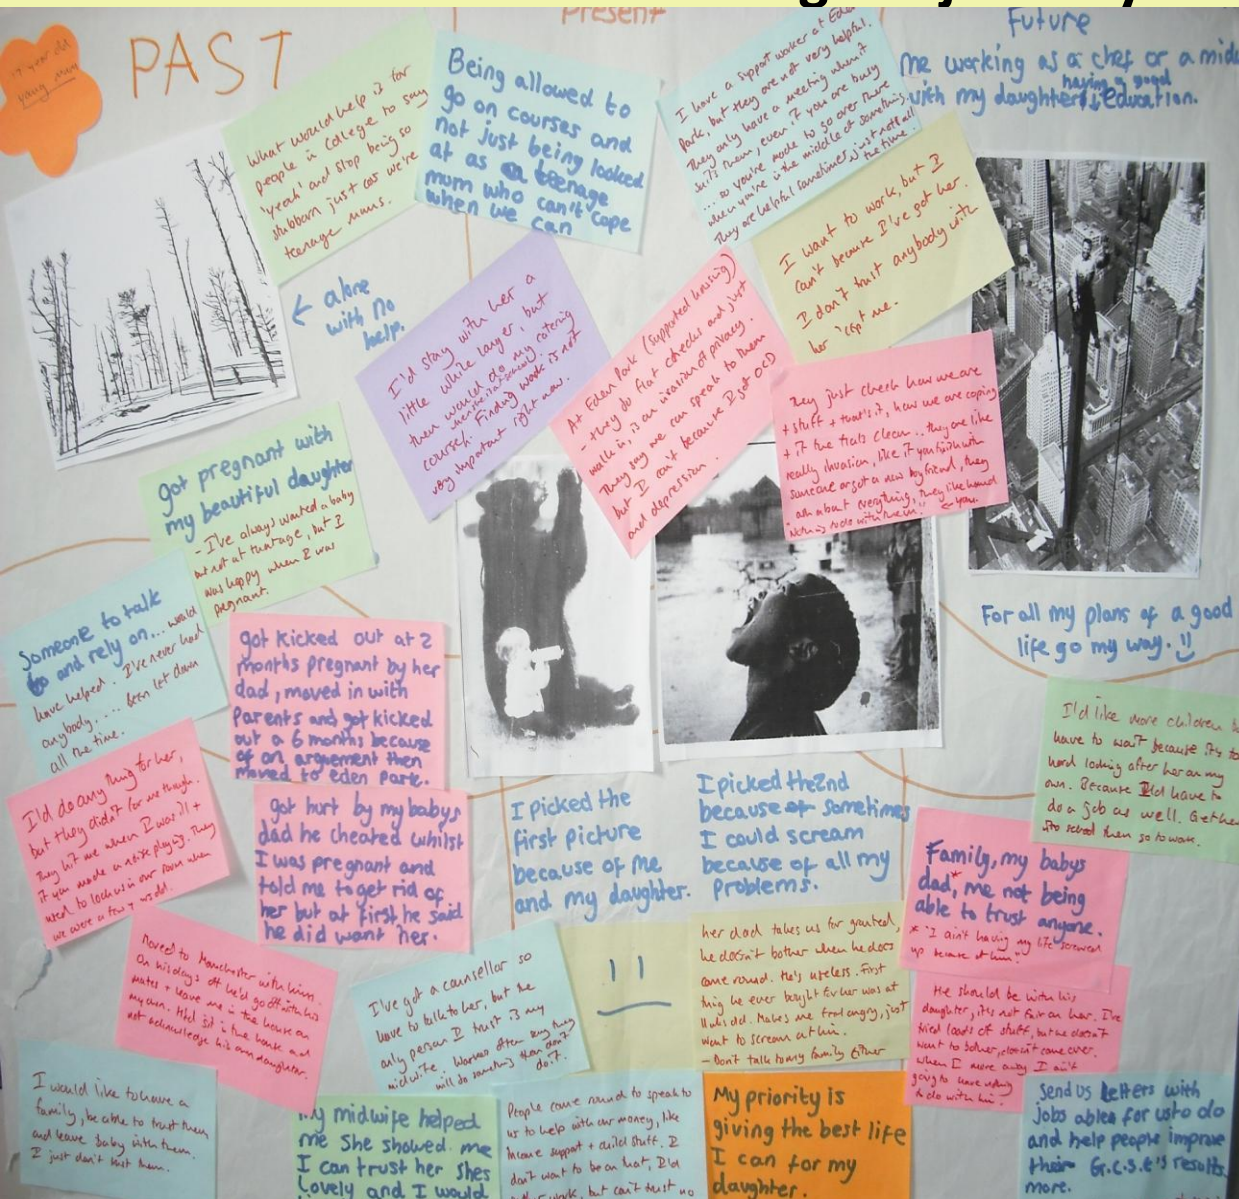 PAST
Present
Future
17 year old
young mum
me working as a chef or a mid
with my daughter having a good
education.
What would help is for
people in college to say
'yeah' and stop being so
stubborn just cos we're
teenage mums.
Being allowed to
go on courses and
not just being looked
at as a teenage
mum who can't cope
when we can
I have a support worker at Eden
Park, but they are not very helpful.
They only have a meeting when it
suits them, even if you are busy
... so you're made to go over there
when you're in the middle of something.
They are helpful sometimes, just not all
the time.
I want to work, but I
can't because I've got her.
I don't trust anybody with
her 'cept me.
← alone
with no
help.
I'd stay with her a
little while longer, but
then would do my catering
course. Finding work is not
very important right now.
At Eden Park (supported housing)
- they do flat checks and just
walk in, is an invasion of privacy.
They say we can speak to them
but I can't because I get OCD
and depression.
They just check how we are
+ stuff + that's it, how we are coping
+ if the flat's clean... they are like
really invasion, like if you fall with
someone or got a new boyfriend, they
ask about everything, they like hound
you.
Nothing to do with them!!
got pregnant with
my beautiful daughter
- I've always wanted a baby
but not at that age, but I
was happy when I was
pregnant.
Someone to talk
to and rely on... would
have helped. I've never had
anybody.... been let down
all the time.
got kicked out at 2
months pregnant by her
dad, moved in with
Parents and got kicked
out a 6 months because
of an arguement then
moved to eden park.
I'd do anything for her,
but they didn't for me though.
They hit me when I was 11 +
if you made a noise playing. They
used to lock us in our room when
we were a few yrs old.
got hurt by my babys
dad he cheated whilst
I was pregnant and
told me to get rid of
her but at first he said
he did want her.
I picked the
first picture
because of me
and my daughter.
I picked the 2nd
because of sometimes
I could scream
because of all my
Problems.
For all my plans of a good
life go my way. !!
I'd like more children
have to wait because it's
hard looking after her on my
own. Because I'd have to
do a job as well. Get her
to school then go to work.
Family, my babys
dad,* me not being
able to trust anyone.
* "I ain't having my life screwed
up because of him".
Moved to Manchester with him.
On his days off he'd go off with his
mates + leave me in the house on
my own. He'd sit in the house and
not acknowledge his own daughter.
I've got a counsellor so
have to talk to her, but the
only person I trust is my
midwife. Workers often say they
will do something then don't
do it.
her dad takes us for granted,
he doesn't bother when he does
come round. He's useless. First
thing he ever bought for her was at
old. Makes me feel angry, just
want to scream at him.
- Don't talk to my family either
He should be with his
daughter, it's not fair on her. I've
tried loads of stuff, but he doesn't
want to bother, doesn't come over.
when I move away I ain't
going to have nothing
to do with him.
I would like to have a
family, be able to trust them
and leave baby with them.
I just don't trust them.
My midwife helped
me She showed me
I can trust her shes
Lovely and I would
People come round to speak to
us to help with our money, like
income support + child stuff. I
don't want to be on that, I'd
work, but can't trust no
My priority is
giving the best life
I can for my
daughter.
Send us letters with
jobs ables for us to do
and help people improve
their G.C.S.E's results
more.